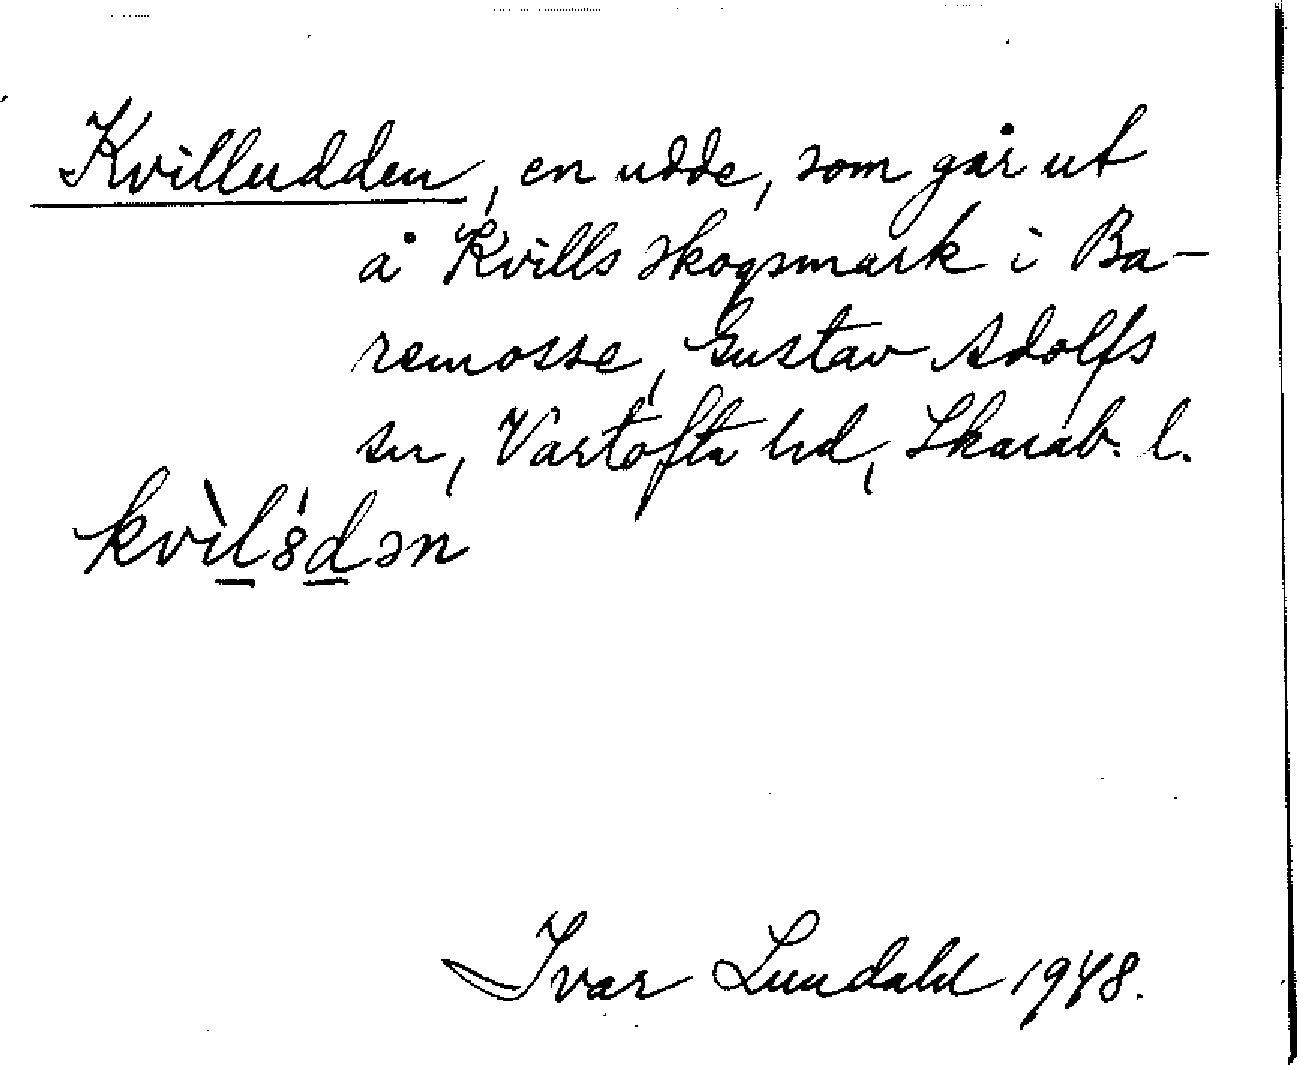 Kvilludden, en udde, som går ut
å Kvills skogsmark i Ba-
remosse, Gustav Adolfs
sn, Vartofta hd, Skarab. l.
kvìl8́dən
Ivar Lundahl 1948.